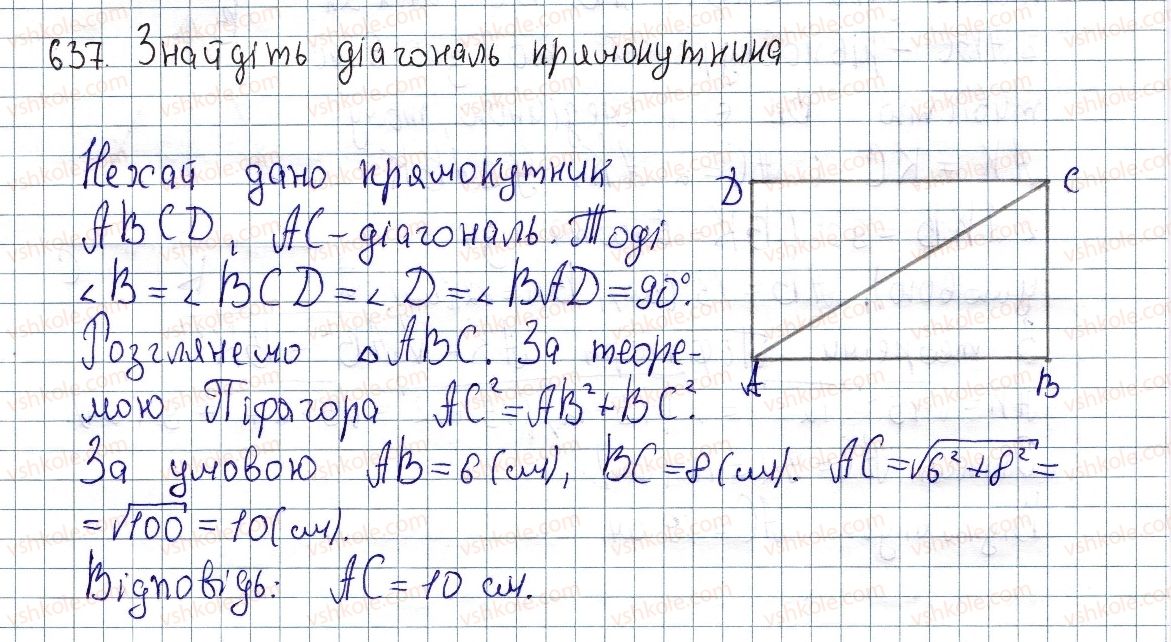 637. Знайдіть діагональ прямокутника
Нехай дано прямокутник
ABCD, AC - діагональ. Тоді
∠B = ∠BCD = ∠D = ∠BAD = 90°.
Розглянемо △ABC. За теоре-
мою Піфагора AC² = AB² + BC².
За умовою AB = 6 (см), BC = 8 (см). AC = √6² + 8² =
= √100 = 10 (см).
Відповідь: AC = 10 см.
D
C
A
B
vshkole.com